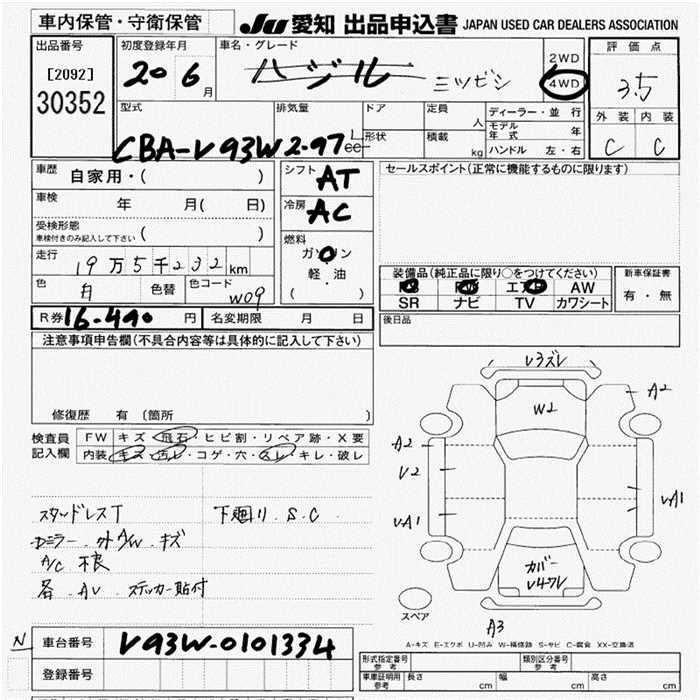 車内保管・守衛保管
JU 愛知 出品申込書 JAPAN USED CAR DEALERS ASSOCIATION
出品番号
[2092]
30352
初度登録年月
20 6月
車名・グレード
ハジル ミツビシ
2WD
4WD
評価点
3.5
外装 内装
C C
型式
CBA-V93W
排気量
2.97cc
ドア
形状
定員
人
積載
kg
ディーラー・並行
モデル年式 年
ハンドル 左・右
車歴
自家用・( )
車検
年 月( 日)
受検形態
車検付きのみ記入して下さい ( )
走行
19万5千232km
色
白
色替
色コード
W09
シフト
AT
冷房
AC
燃料
ガソリン
軽・油
( )
セールスポイント(正常に機能するものに限ります)
装備品(純正品に限り○をつけてください)
PS PW エアB AW
SR ナビ TV カワシート
新車保証書
有・無
R券 16.490 円
名変期限 月 日
後日品
注意事項申告欄(不具合内容等は具体的に記入して下さい)
修復歴 有 [箇所 ]
検査員
記入欄
FW キズ・飛石・ヒビ割・リペア跡・X要
内装 キズ・汚レ・コゲ・穴・スレ・キレ・破レ
スタッドレスT 下廻り S.C
Dミラー 外AW キズ
A/C 不良
各 AV ステッカー貼付
V3ズレ
W2
A2
A2
V2
VA1
VA1
カバー
V4ワレ
スペア
A3
A-キズ E-エクボ U-凹み W-補修跡 S-サビ C-腐食 XX-交換済
N
車台番号
V93W-0101334
登録番号
形式指定番号
参考
類別区分番号
参考
車庫証明用
参考
長さ cm
幅 cm
高さ cm